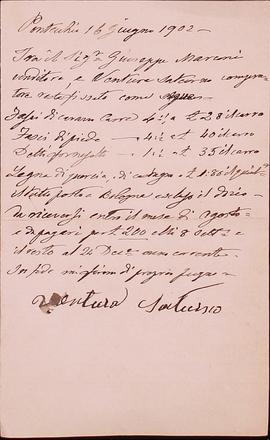 Pontecchio 16 Giugno 1902 =
Tra il Sig.r Giuseppe Marconi
venditore e Ventura Saturno compra-
tore resta fissato come segue
Fassi di Carra 4½ a £ 28 il carro
Fasci di piede 4½ £ 40 il carro
Detti 1½ £ 35 il carro
Legna di a £ 1:80 il
il tutto posto a Bologna escluso il dazio
da riceversi entro il mese di Agosto
e da pagarsi per £ 200 alli 8 
il resto al 24 Dec.e anno corrente
In fede mi firmo di proprio pugno
Ventura Saturno